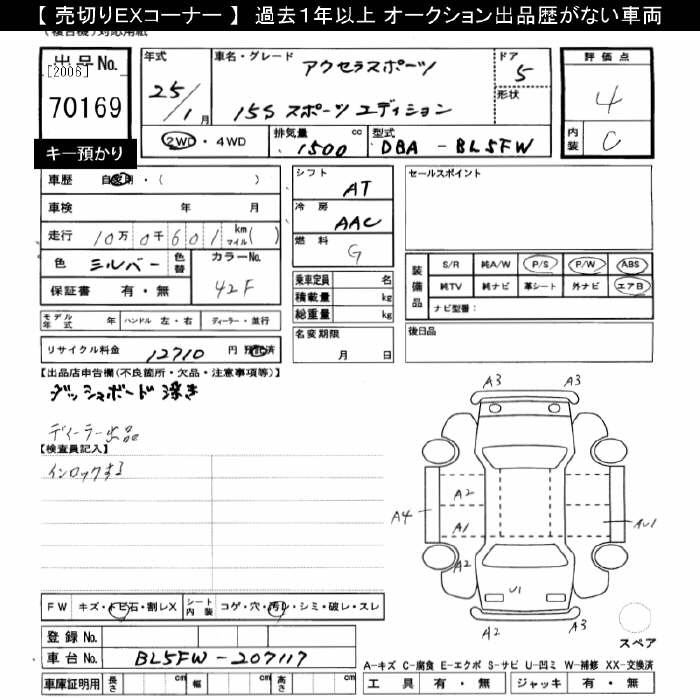 【 売切りEXコーナー 】 過去1年以上 オークション出品歴がない車両
(複合機)対応用紙
出品No.
[2006]
70169
キー預かり
年式 25/1月
車名・グレード アクセラスポーツ
15S スポーツエディション
ドア 5
形状
2WD ・ 4WD
排気量 1500 cc
型式 DBA - BL5FW
評価点 4
内装 C
車歴 自家用 ・ ( )
車検 年 月
走行 10万0千601 km マイル ( )
色 シルバー 色替 カラーNo. 42F
保証書 有・無
モデル年式 年 ハンドル 左・右 ディーラー・並行
リサイクル料金 12710 円 預託済
シフト AT
冷房 AAC
燃料 G
乗車定員 名
積載量 kg
総重量 kg
名変期限
月 日
セールスポイント
装備品 S/R 純A/W P/S P/W ABS
純TV 純ナビ 革シート 外ナビ エアB
ナビ型番:
後日品
【出品店申告欄(不良箇所・欠品・注意事項等)】
ダッシュボード浮き
ディーラー出品
【検査員記入】
インロックする
A3 A3
A2
A4 A1 AU1
A2
U1
A2 A3
スペア
FW キズ・トビ石・割レX シート内装 コゲ・穴・汚レ・シミ・破レ・スレ
登録No.
車台No. BL5FW-207117
車庫証明用 長さ cm 幅 cm 高さ cm
A-キズ C-腐食 E-エクボ S-サビ U-凹ミ W-補修 XX-交換済
工具 有・無 ジャッキ 有・無